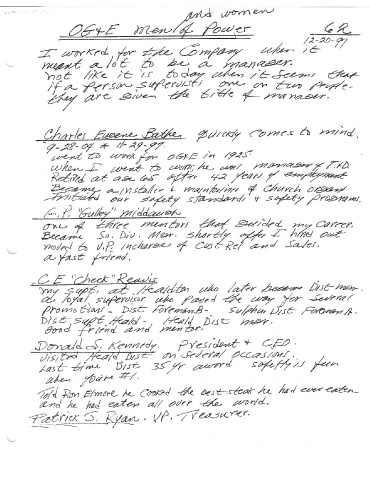 and women
OG&E Men of Power 6R
12-20-97
I worked for the Company when it
meant a lot to be a manager.
not like it is today when it seems that
if a person supervises one or two people
they are given the title of manager.
Charles Eugene Bathe quickly comes to mind.
9-28-04 * 11-29-97
went to work for OG&E in 1925
When I went to work he was manager of T&D
Retired at age 65 after 42 years of employment
Became a installer & maintainer of Church organs
Initiated our safety standards & safety programs.
G.P. "Gulley" Middleton
one of three mentors that guided my career.
Became So. Div. Man. shortly after I hired out
moved to V.P. incharge of Cust Rel and Sales.
a fast friend.
C E "Cheek" Reavis
my supt. at Healdton who later became Dist man.
a loyal supervisor who paved the way for several
promotions - Dist Foreman B - Sulphur Dist Foreman A -
Dist Supt Heald - Heald Dist man.
Good friend and mentor.
Donald S. Kennedy. President & CEO.
Visited Heald Dist on several occasions.
Last time Dist 35 yr award safety is fun
when you're #1.
Told Ron Elmore he cooked the best steak he had ever eaten
and he had eaten all over the world.
Patrick S. Ryan - VP. Treasurer.